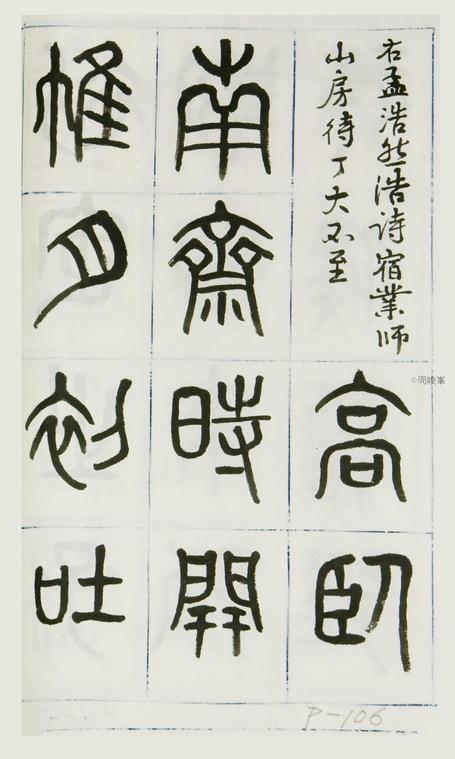 右孟浩然浩詩宿業師
山房待丁大不至
高臥
南齋時開
帷月初吐
©周峻峯
P-106